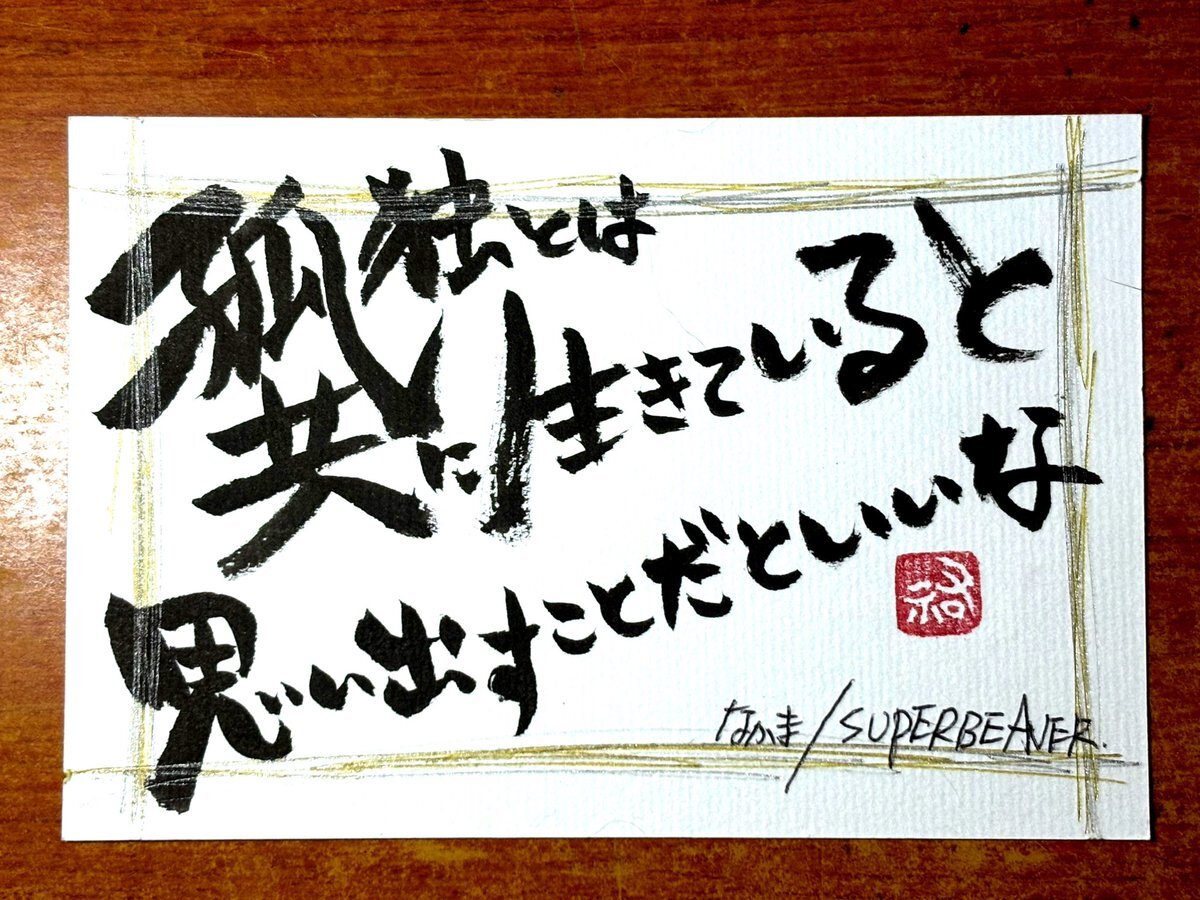 孤独とは
共に生きていると
思い出すことだといいな
なかま/SUPERBEAVER.